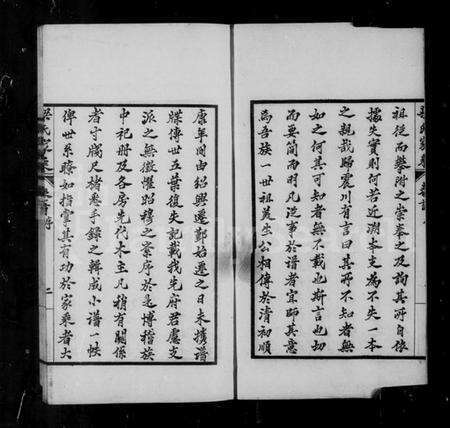 祖從而攀附之崇奉之及詢其所自依
據失實則何若近溯本支為不失一本
之親哉歸震川有言曰其所不知者無
如之何其可知者無不載也斯言也切
而要簡而明凡從事於譜者宜師其意
焉吾族一世祖茂生公相傳於清初順
康年間由紹興遷鄞始遷之日未攜譜
牒傳世五葉復失記載我先府君慮支
派之無徵懼昭穆之紊序於是博稽族
中祀冊及各房先代木主凡稍有關係
者寸牋尺楮悉手錄之輯成小譜一帙
俾世系瞭如指掌其有功於家乘者大
二